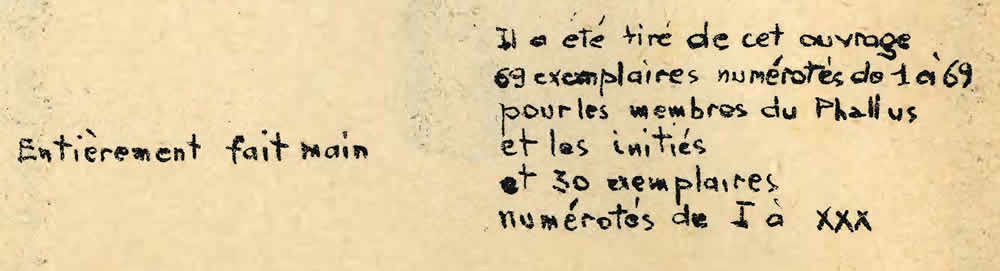 Entièrement fait main
Il a été tiré de cet ouvrage
69 exemplaires numérotés de 1 à 69
pour les membres du Phallus
et les initiés
et 30 exemplaires
numérotés de I à XXX